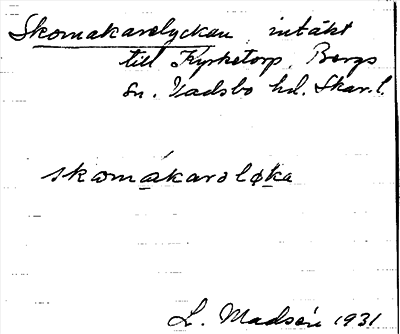 Skomakarelyckan, intäkt
till Kyrketorp, Bergs
sn. Vadsbo hd. Skar. l.
skomákaroløka
L. Madsén 1931